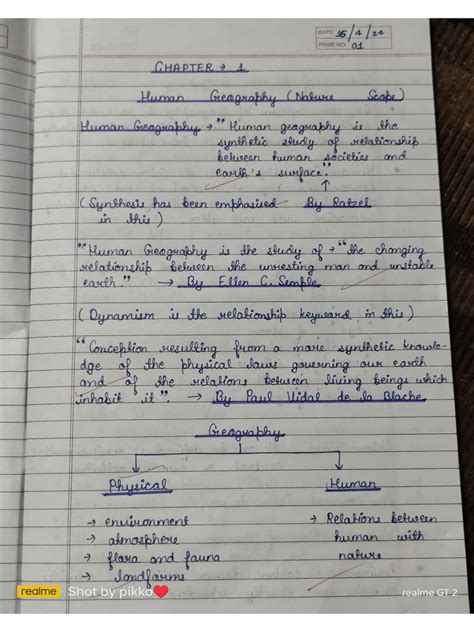 DATE 16/4/24
PAGE NO: 01
CHAPTER → 1
Human Geography (Nature Scope)
Human Geography → "Human geography is the
synthetic study of relationship
between human societies and
earth's surface".
(Synthesis has been emphaised By Ratzel
in this)
"Human Geography is the study of → "the changing
relationship between the unresting man and unstable
earth." → By Ellen C. Semple
(Dynamism is the relationship keyward in this)
"Conception resulting from a more synthetic knowle-
dge of the physical laws governing our earth
and of the relations between living beings which
inhabit it". → By Paul Vidal de la Blache
Geography
Physical Human
→ environment → Relations between
→ atmosphere human with
→ flora and fauna nature
→ landforms
realme Shot by pikko❤ realme GT 2